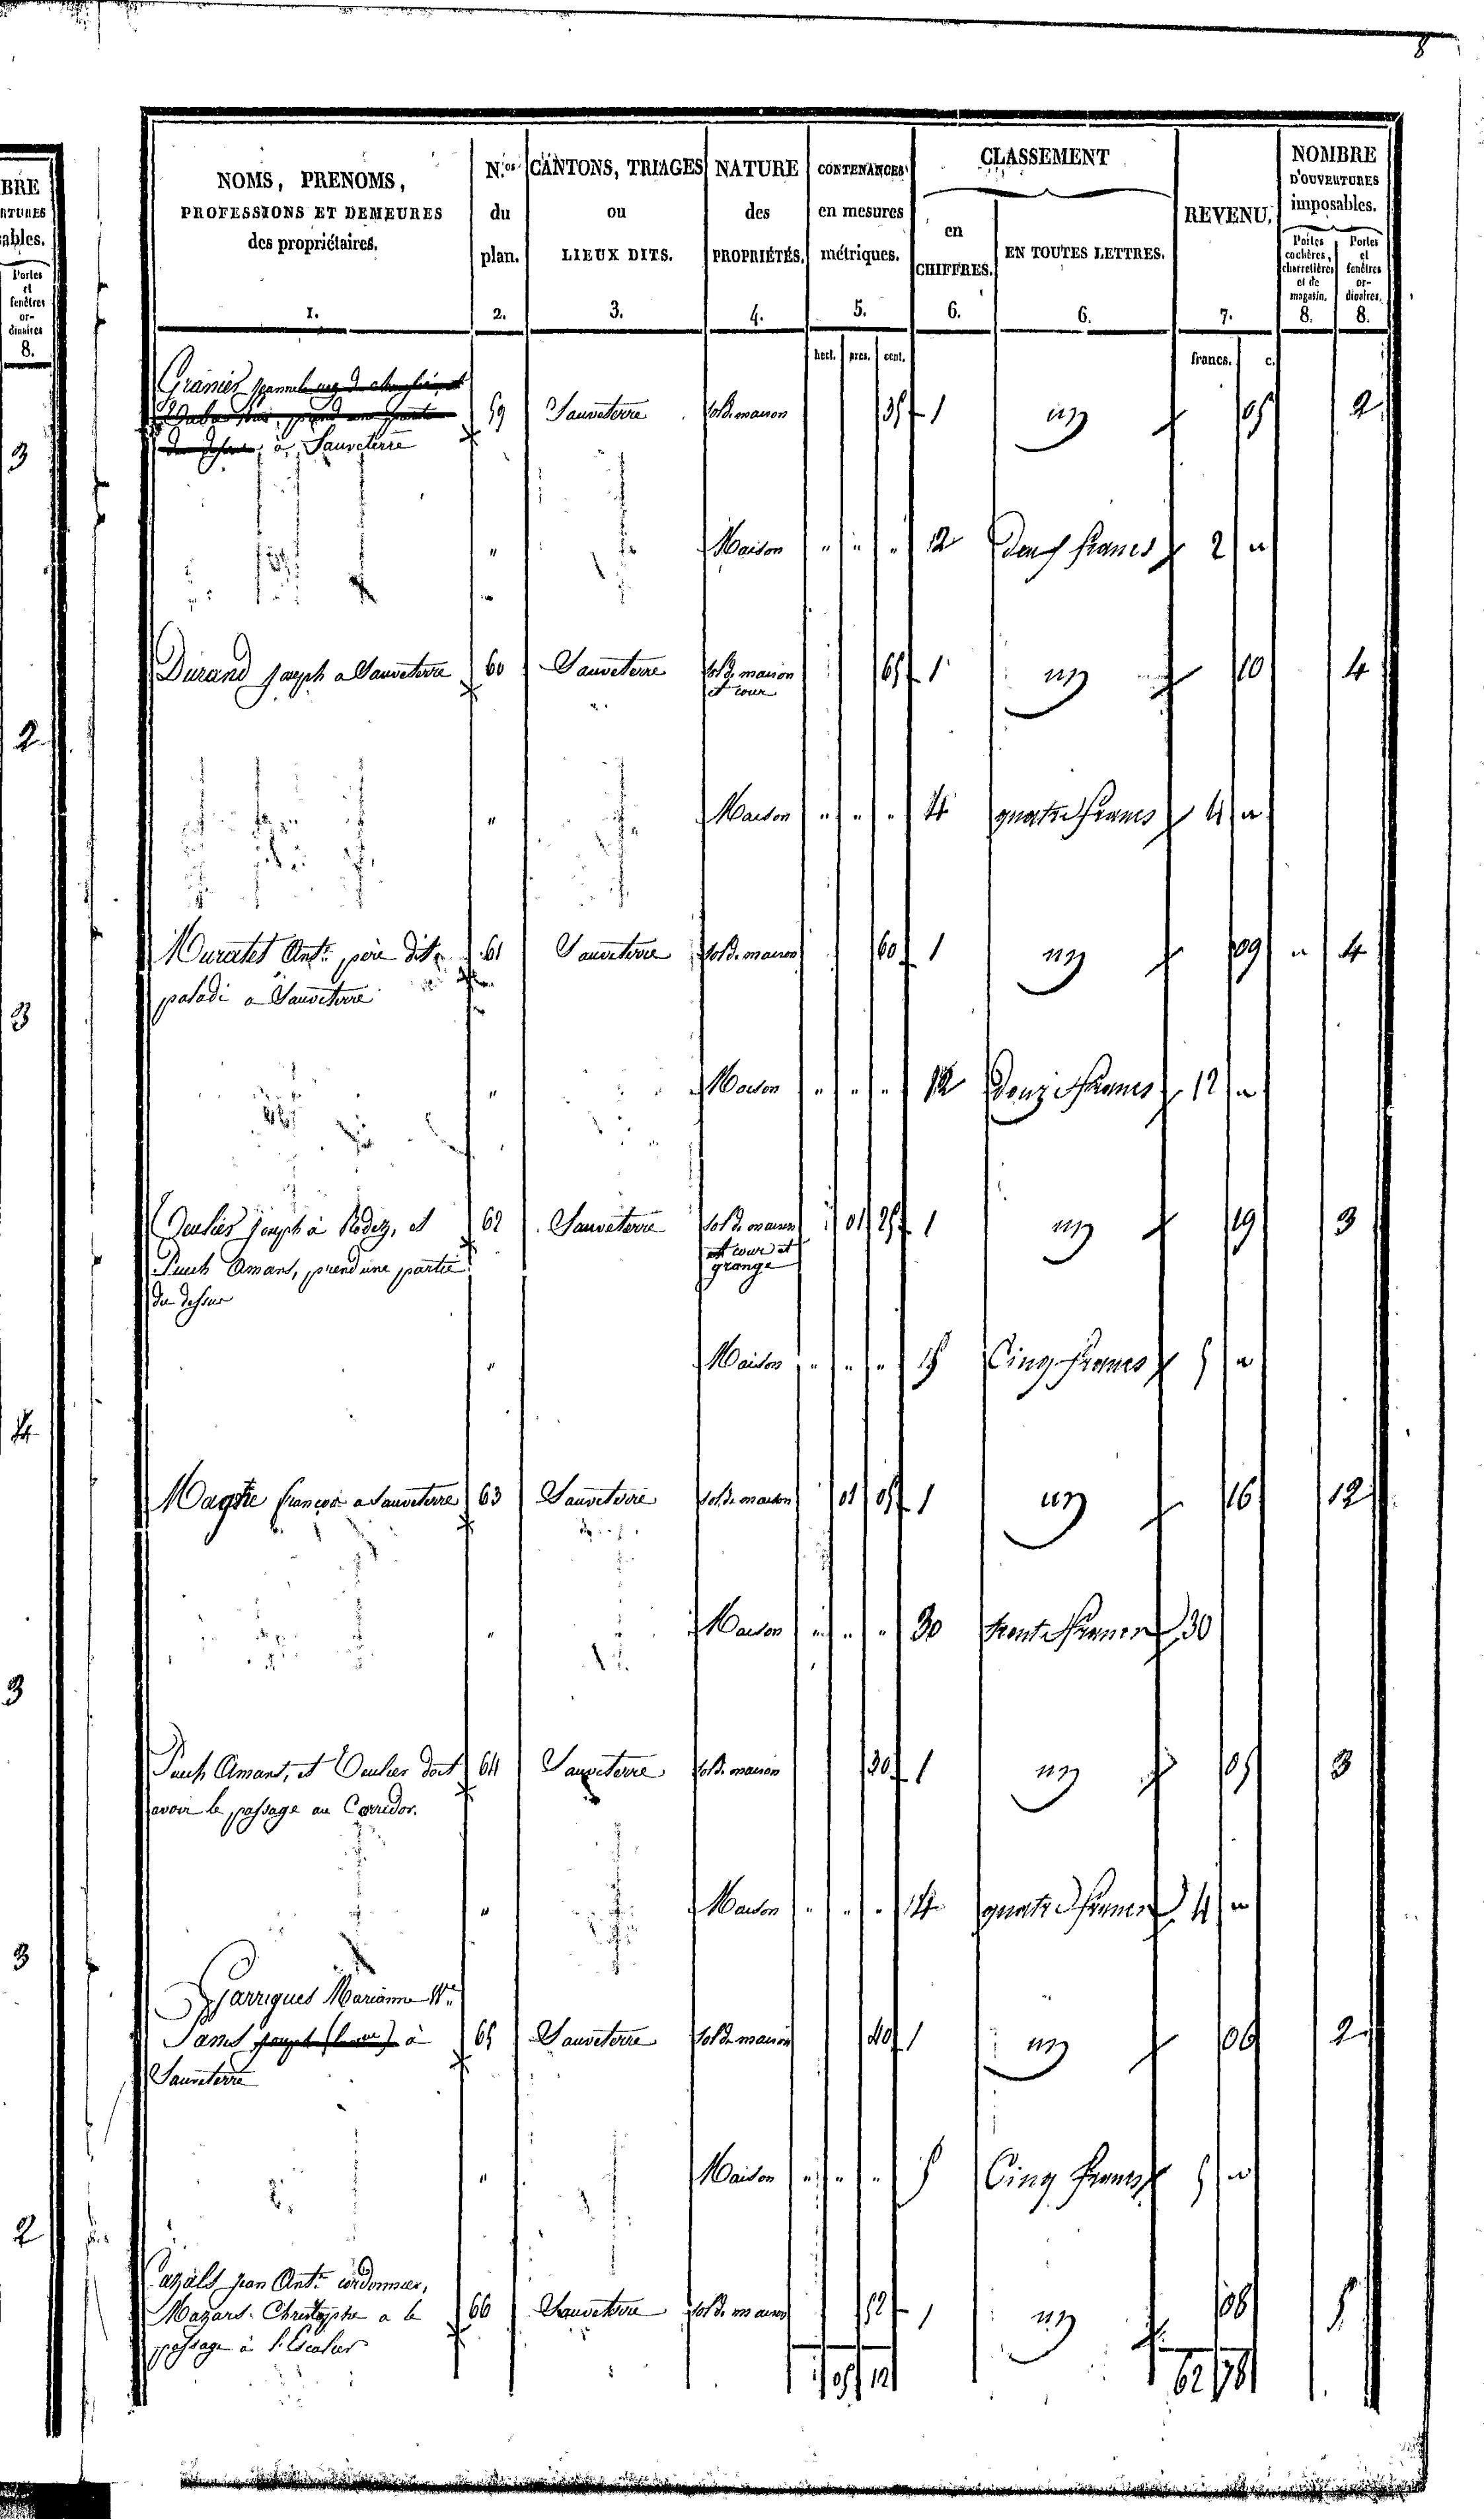 8
BRE
RTURES
ables.
Portes
et
fenêtres
or-
dinaires
8.
3
2
3
4
3
3
2
NOMS, PRENOMS,
PROFESSIONS ET DEMEURES
des propriétaires.
1.
N.os
du
plan.
2.
CANTONS, TRIAGES
ou
LIEUX DITS.
3.
NATURE
des
PROPRIÉTÉS.
4.
CONTENANCES
en mesures
métriques.
5.
CLASSEMENT
en
CHIFFRES.
6.
EN TOUTES LETTRES.
6.
REVENU.
7.
NOMBRE
D'OUVERTURES
imposables.
Portes
cochères,
charretières
et de
magasin.
8.
Portes
et
fenêtres
or-
dinaires.
8.
hect. ares. cent. francs. c.
Granier
59 Sauveterre sol de maison 35 1 un 05 2
à Sauveterre
" Maison " " " 2 deux francs 2 "
Durand Joseph a Sauveterre 60 Sauveterre sol de maison 65 1 un 10 4
et cour
" Maison " " " 4 quatre francs 4 "
Muratet Ant.e père dit 61 Sauveterre sol de maison 60 1 un 09 " 4
paladi a Sauveterre
" Maison " " " 12 douze francs 12 "
Joseph à Rodez, et 62 Sauveterre sol de maison 01 25 1 un 19 3
Puech Amans, prend une partie et cour et
du dessus grange
" Maison " " " 5 Cinq francs 5 "
Magne françois a Sauveterre 63 Sauveterre sol de maison 01 05 1 un 16 12
" Maison " " " 30 trente francs 30
Puech Amans, et doit 64 Sauveterre sol de maison 30 1 un 05 3
avoir le passage au Corridor.
" Maison " " " 4 quatre francs 4 "
Garrigues Marianne V.ve
à 65 Sauveterre sol de maison 40 1 un 06 2
Sauveterre
" Maison " " " 5 Cinq francs 5 "
Cazals jean Ant.e cordonnier,
Mazars Christophe a le 66 Sauveterre sol de maison 52 1 un 08 5
passage à l'Escalier
05 12 62 78